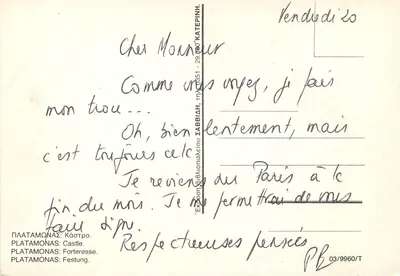 Vendredi 20
Cher Monsieur
Comme vous voyez, je fais
mon trou...
Oh, bien lentement, mais
c'est toujours cela.
Je reviens sur Paris à la
fin du mois. Je me permettrai de vous
faire signe.
Respectueuses pensées
ΠΛΑΤΑΜΩΝΑΣ: Κάστρο.
PLATAMONAS: Castle.
PLATAMONAS: Forteresse.
PLATAMONAS: Festung.
03/9960/T
ΣΑΒΒΙΔΗ, ΚΑΤΕΡΙΝΗ.